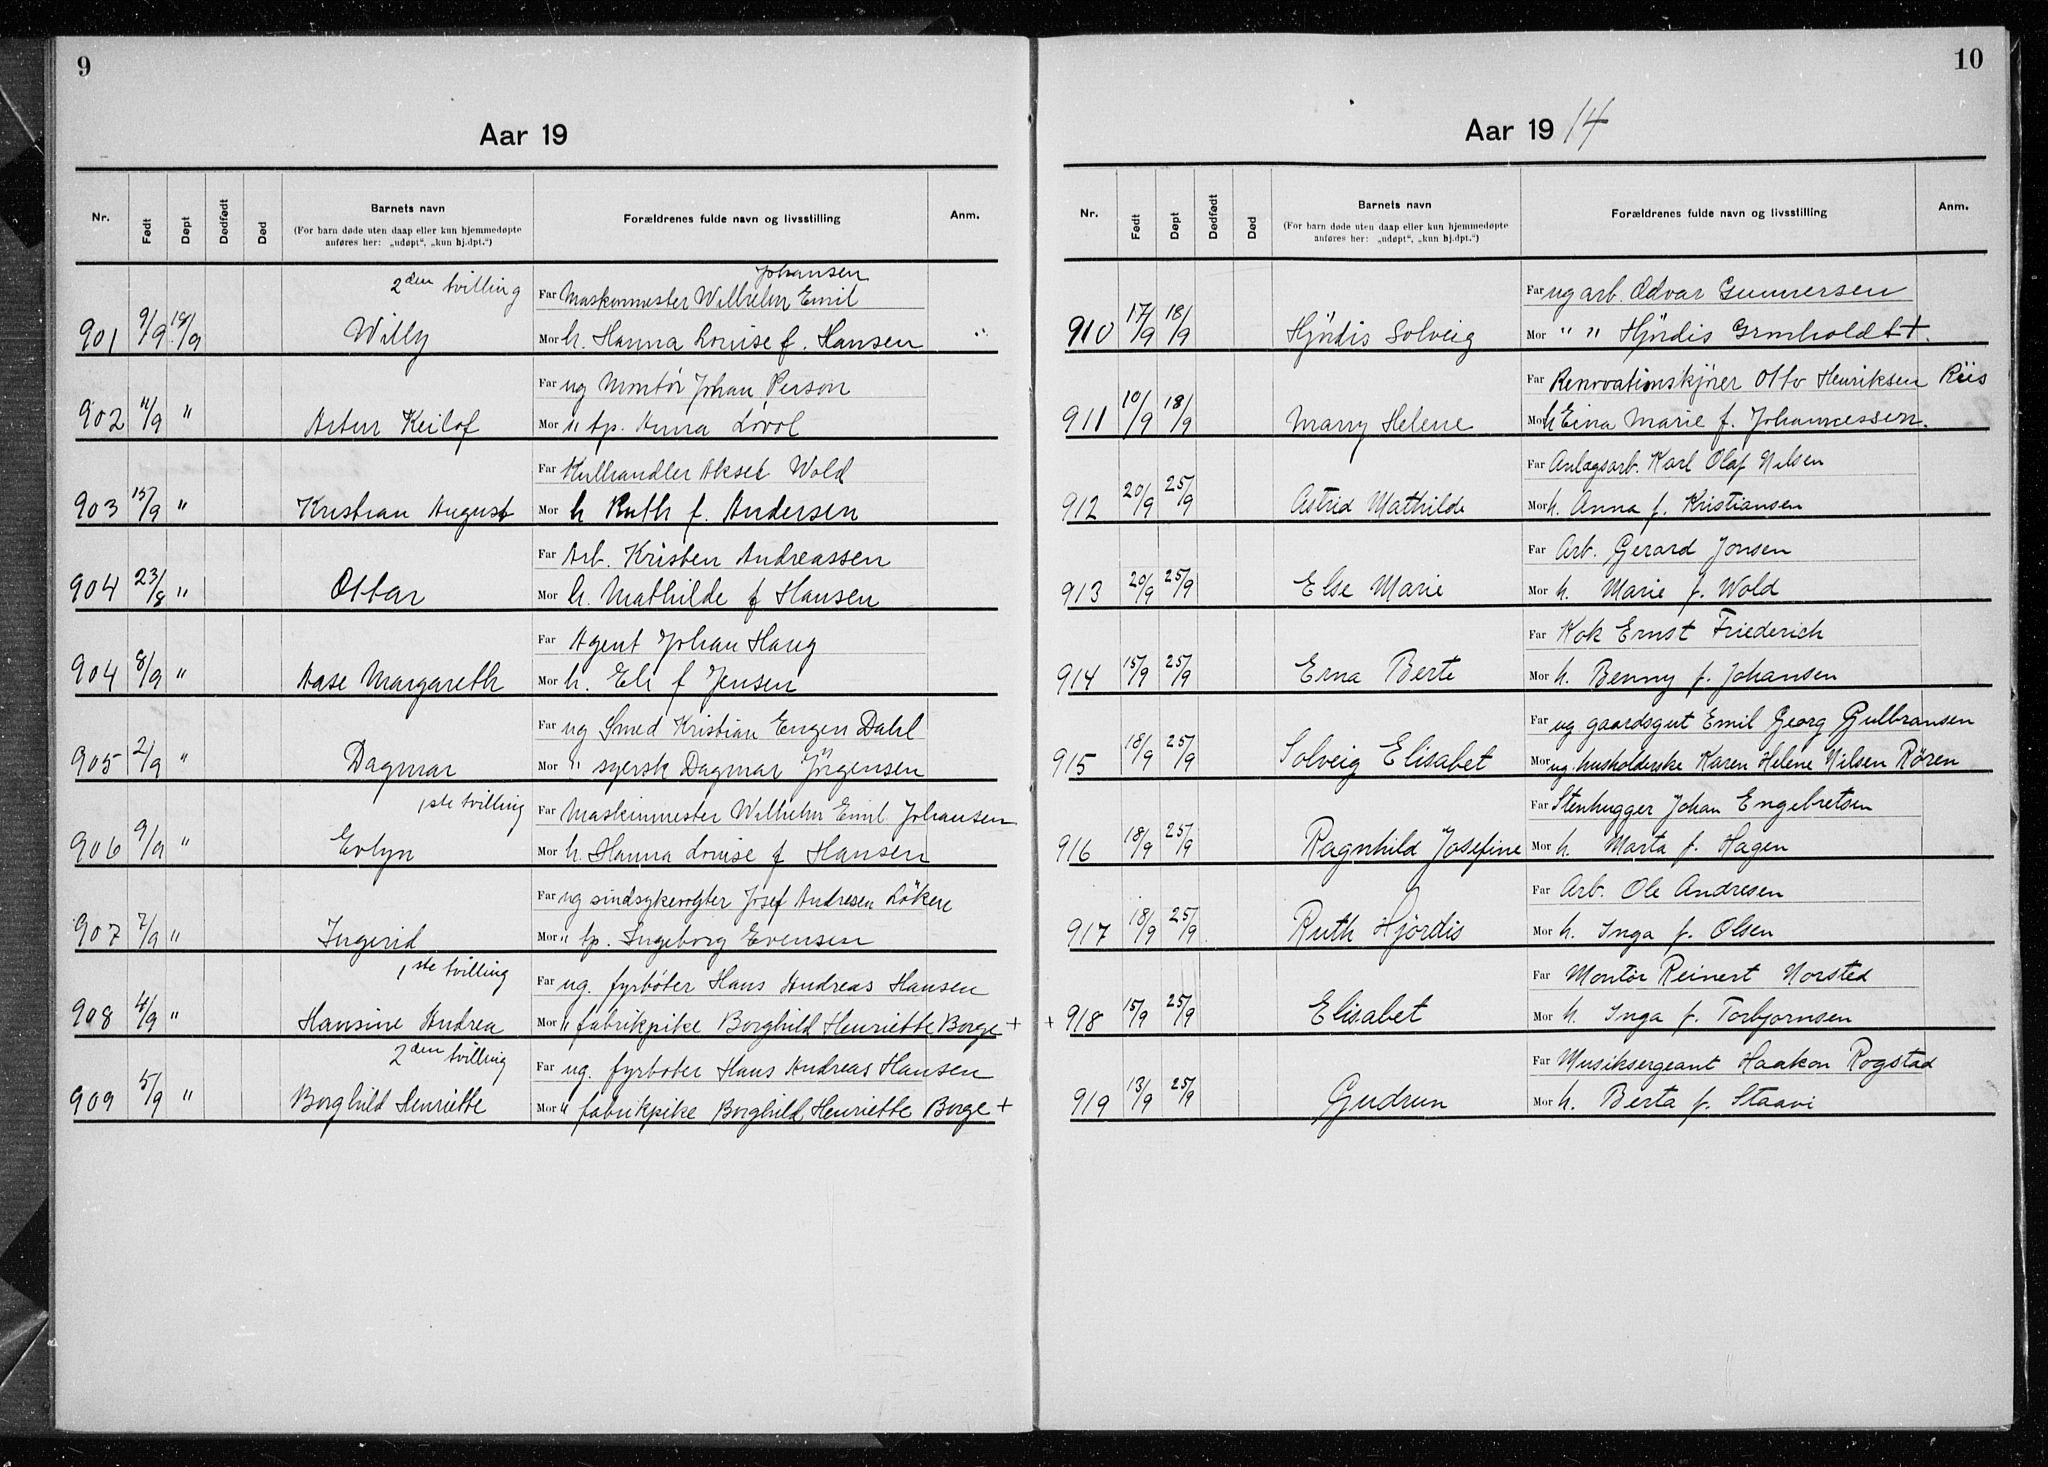 9
Aar 19
Nr. Født Døpt Dødfødt Død Barnets navn (For barn døde uten daap eller kun hjemmedøpte anføres her: „udøpt", „kun hj.dpt.") Forældrenes fulde navn og livsstilling Anm.
2den tvilling Far Maskinmester Wilhelm Emil Johansen
901 9/9 18/9 Willy Mor h. Hanna Louise f. Hansen "
Far ug Montör Johan Person
902 11/9 " Artur Keilof Mor " tp. Anna Lövol
Far Kulhandler Aksel Wold
903 15/9 " Kristian August Mor h Ruth f. Andersen
Far Arb. Kristen Andreassen
904 23/8 " Ottar Mor h. Mathilde f Hansen
Far Agent Johan Haug
904 8/9 " Aase Margareth Mor h. Eli f Jensen
Far ug Smed Kristian Engen Dahl
905 2/9 " Dagmar Mor " syersk Dagmar Jörgensen
1ste tvilling Far Maskinmester Wilhelm Emil Johansen
906 9/9 " Evlyn Mor h. Hanna Louise f Hansen
Far ug sindsykevogter Josef Andresen Lökere
907 7/9 " Ingerid Mor " tp. Ingeborg Evensen
1ste tvilling Far ug. fyrböter Hans Andreas Hansen
908 4/9 " Hansine Andrea Mor " fabrikpike Borghild Henriette Borge +
2den tvilling Far ug. fyrböter Hans Andreas Hansen
909 5/9 " Borghild Henriette Mor " fabrikpike Borghild Henriette Borge +
10
Aar 19 14
Nr. Født Døpt Dødfødt Død Barnets navn (For barn døde uten daap eller kun hjemmedøpte anføres her: „udøpt", „kun hj.dpt.") Forældrenes fulde navn og livsstilling Anm.
Far ug arb. Odvar Gunnersen
910 17/9 18/9 Hjördis Solveig Mor " " Hjördis Grnholdt +.
Far Renovationskjörer Otto Henriksen Riis
911 10/9 18/9 Marry Helene Mor h Eina Marie f. Johannessen.
Far Anlagsarb. Karl Olaf Nilsen
912 20/9 25/9 Astrid Mathilde Mor h. Anna f. Kristiansen
Far Arb. Gerard Jonsen
913 20/9 25/9 Else Marie Mor h. Marie f. Wold
Far Kok Ernst Friederich
914 15/9 25/9 Erna Berte Mor h. Benny f. Johansen
Far ug gaardsgut Emil Georg Gulbransen
915 18/9 25/9 Solveig Elisabet Mor ug. husholderske Karen Helene Nilsen Rören
Far Stenhugger Johan Engebretsen
916 18/9 25/9 Ragnhild Josefine Mor h. Marta f. Hagen
Far Arb. Ole Andresen
917 18/9 25/9 Ruth Hjördis Mor h. Inga f. Olsen
Far Montör Reinert Norsted
+ 918 15/9 25/9 Elisabet Mor h. Inga f. Torbjornsen
Far Musiksergeant Haakon Rogstad
919 13/9 25/9 Gudrun Mor h. Berta f. Staavi